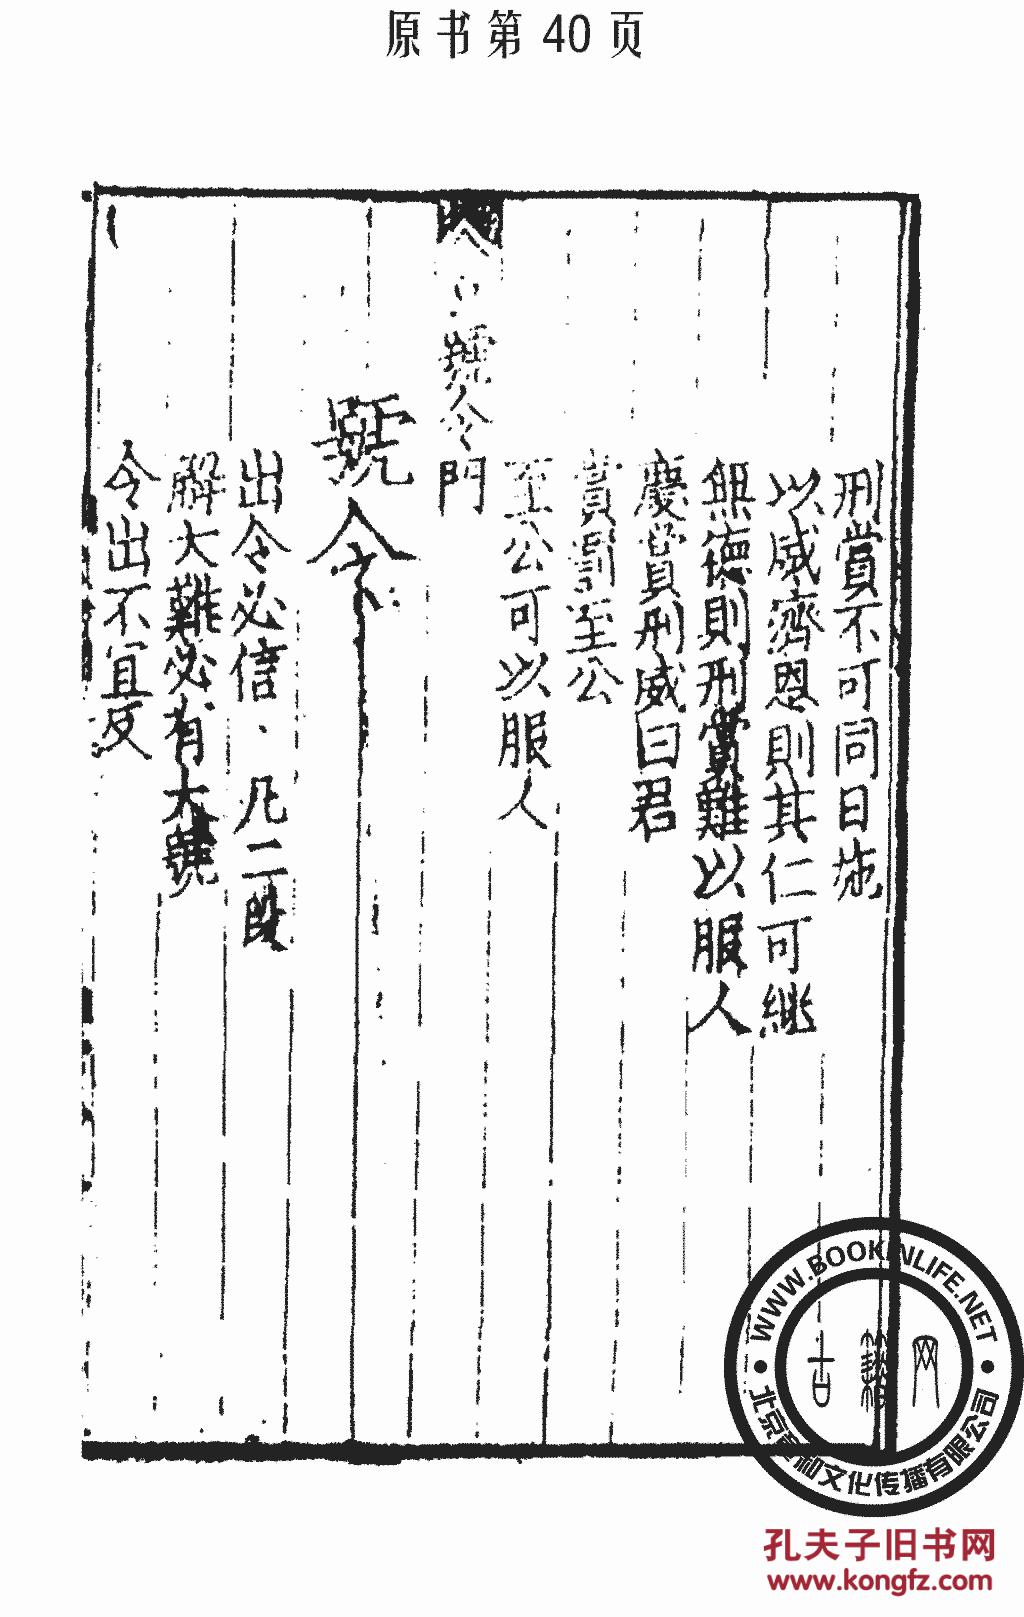 原书第40页
刑賞不可同日施
以威濟恩則其仁可継
無德則刑賞難以服人
慶賞刑威曰君
賞罰至公
至公可以服人
號令門
號令
出令必信、凡二段
解大難必有大號
令出不宜反
WWW.BOOKINLIFE.NET
文化传播有限公司
孔夫子旧书网
www.kongfz.com